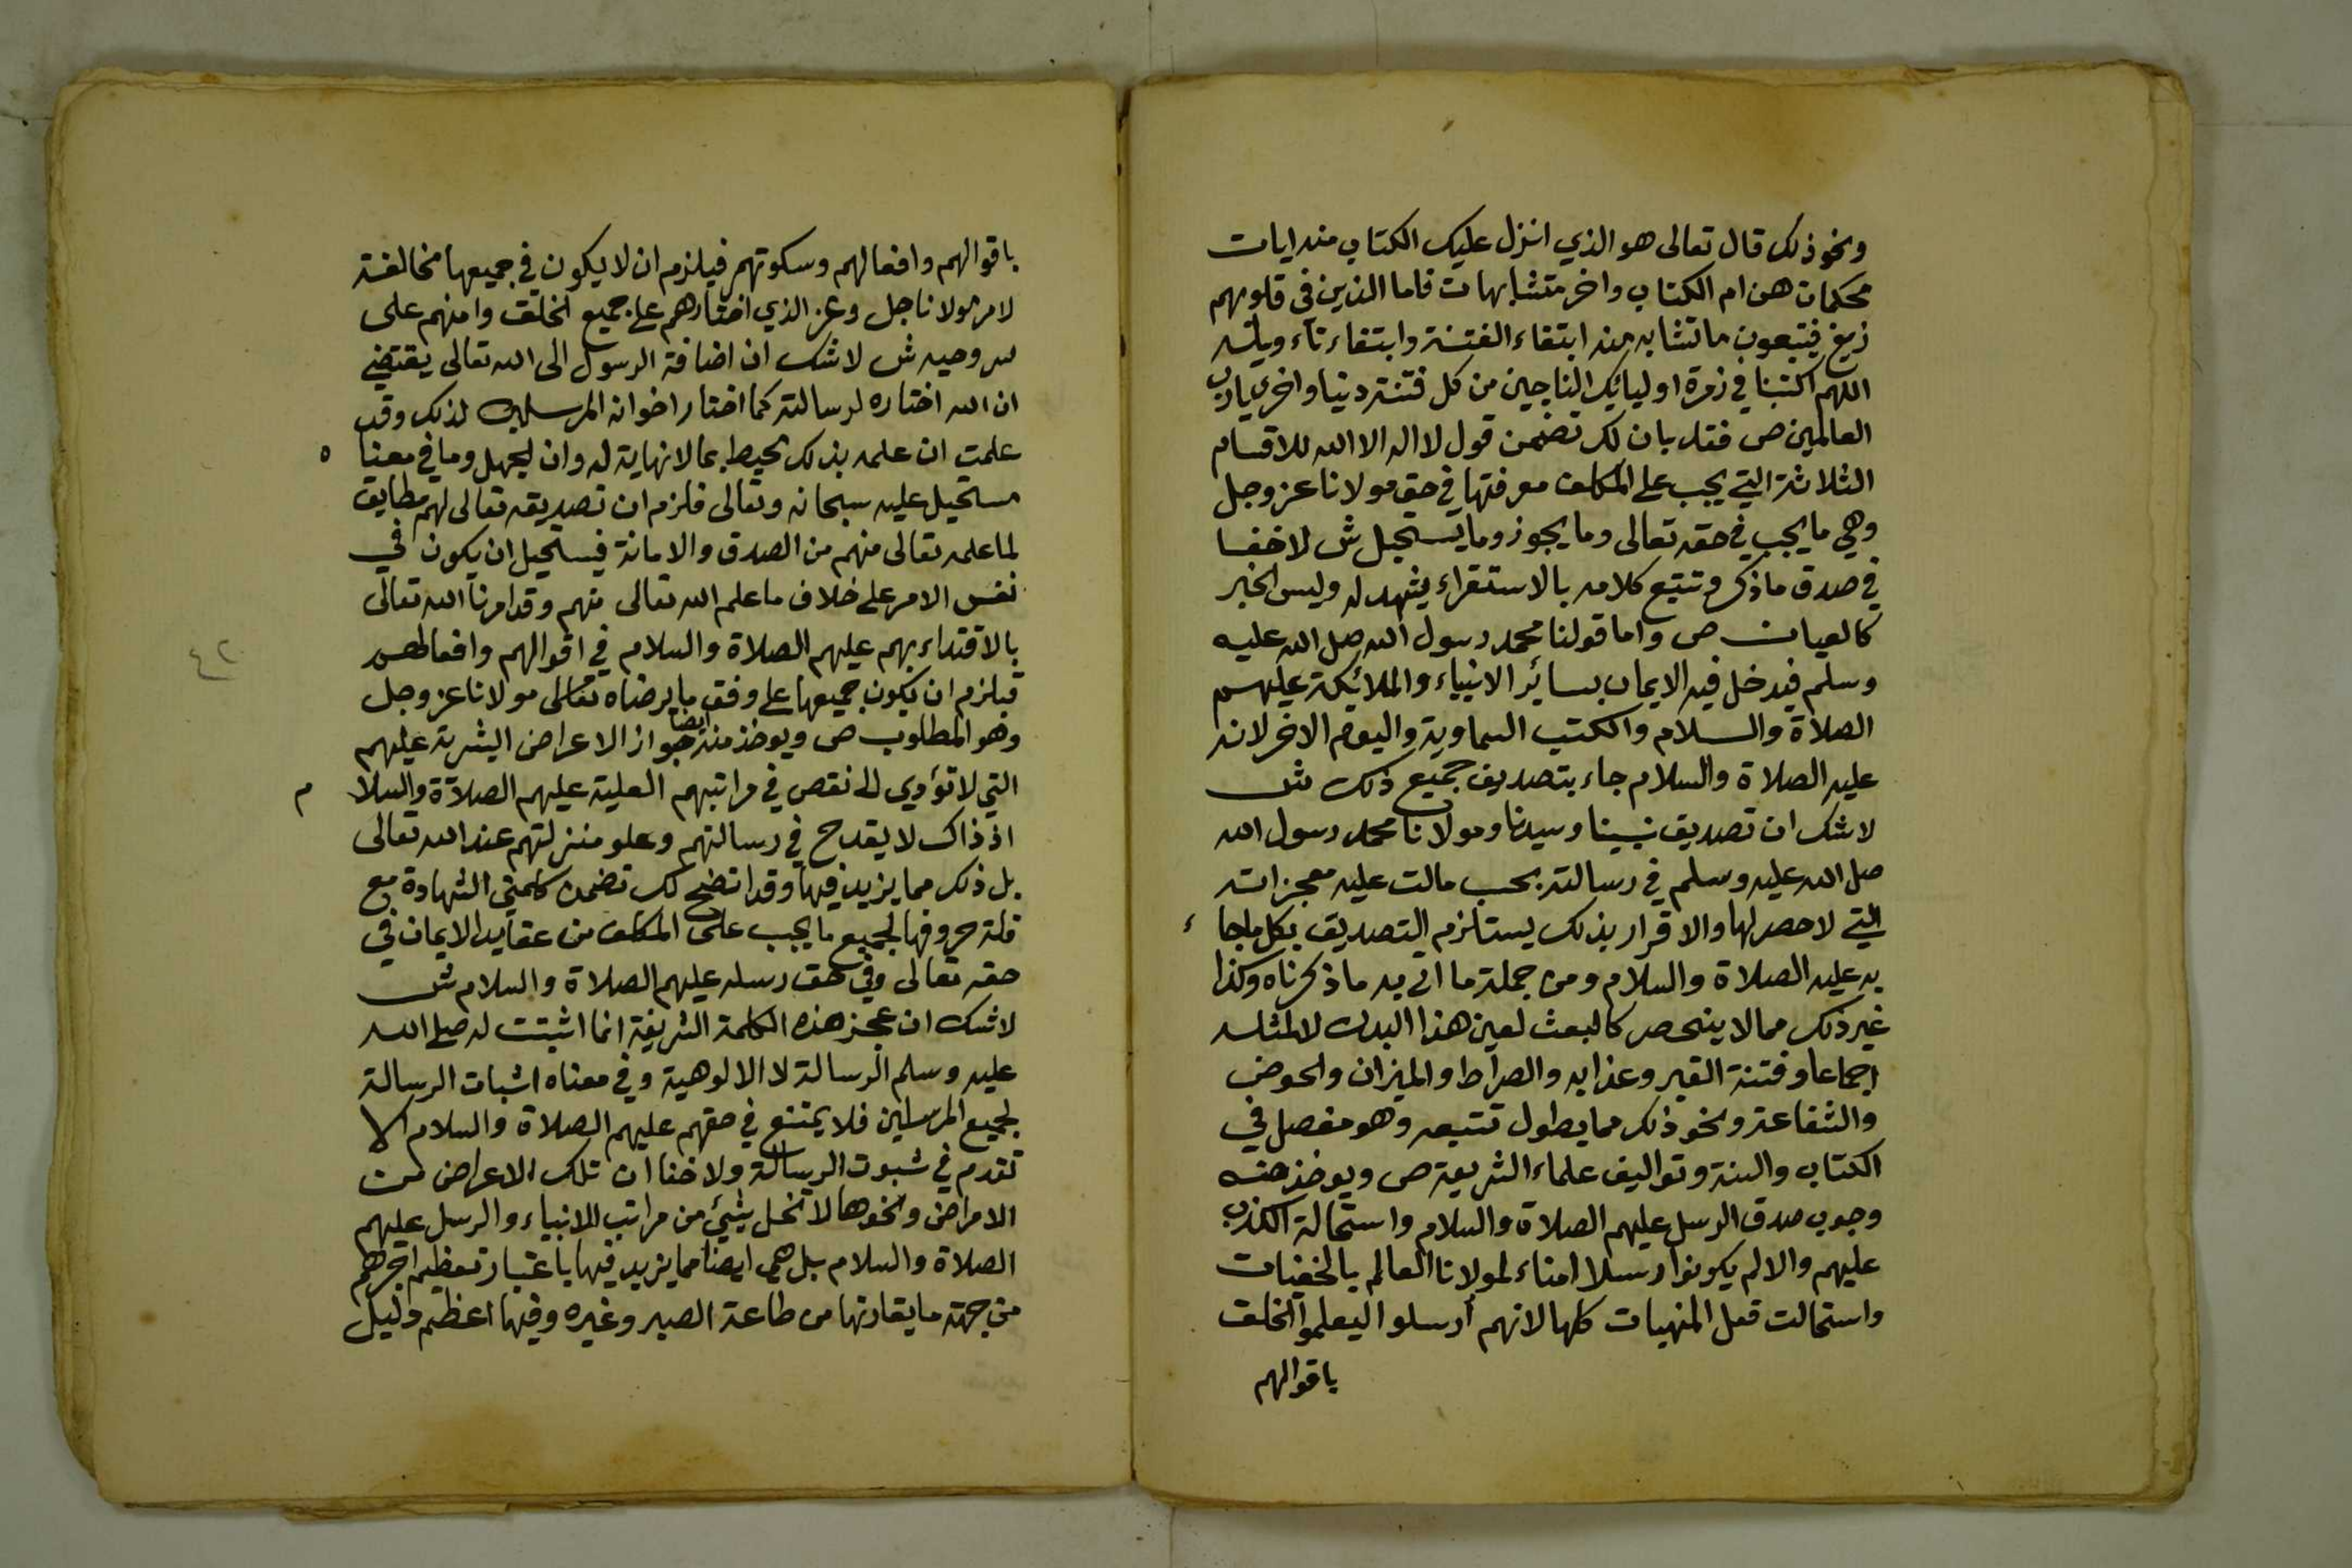 ونحو ذلك قال تعالى هو الذي انزل عليك الكتاب منه ايات
محكمات هن ام الكتاب واخر متشابهات فاما الذين في قلوبهم
زيغ فيتبعون ما تشابه منه ابتغاء الفتنة وابتغاء تاءويله
اللهم اكتبنا في زمرة اوليائك الناجين من كل فتنة دنيا واخرى يارب
العالمين ص فقد بان لك تضمن قول لا اله الا الله للاقسام
الثلاثة التي يجب على المكلف معرفتها في حق مولانا عز وجل
وهي ما يجب في حقه تعالى وما يجوز وما يستحيل ش لا خفا
في صدق ما ذكر وتتبع كلامه بالاستقراء يشهد له وليس الخبر
كالعيان ص واما قولنا محمد رسول الله صلى الله عليه
وسلم فيدخل فيه الايمان بسائر الانبياء والملائكة عليهم
الصلاة والسلام والكتب السماوية واليوم الاخر لانه
عليه الصلاة والسلام جاء بتصديق جميع ذلك ش
لاشك ان تصديق نبينا وسيدنا ومولانا محمد رسول الله
صلى الله عليه وسلم في رسالته بحسب مالت عليه معجزاته
التي لا حصر لها والاقرار بذلك يستلزم التصديق بكل ماجا ء
به عليه الصلاة والسلام ومن جملة ما اتى به ما ذكرناه وكذا
غير ذلك مما لا ينحصر كالبعث لعين هذا البدن لا لمثله
اجماعا وفتنة القبر وعذابه والصراط والميزان والحوض
والشفاعة ونحو ذلك مما يطول تتبعه وهو مفصل في
الكتاب والسنة وتواليف علماء الشريعة ص ويوخذ منه
وجوب صدق الرسل عليهم الصلاة والسلام واستحالة الكذب
عليهم والا لم يكونوا رسلا امناء لمولانا العالم بالخفيات
واستحالت فعل المنهيات كلها لانهم أرسلوا ليعلموا الخلق
باقوالهم
باقوالهم وافعالهم وسكوتهم فيلزم ان لا يكون في جميعها مخالفة
لامر مولانا جل وعز الذي اختارهم على جميع الخلق وامنهم على
سر وحيه ش لاشك ان اضافة الرسول الى الله تعالى يقتضي
ان الله اختاره لرسالته كما اختار اخوانه المرسلين لذلك وقد
علمت ان علمه بذلك محيط بما لا نهاية له وان الجهل وما في معنا ه
مستحيل عليه سبحانه وتعالى فلزم ان تصديقه تعالى لهم مطابق
لما علمه تعالى منهم من الصدق والامانة فيستحيل ان يكون في
نفس الامر على خلاف ما علم الله تعالى منهم وقد امرنا الله تعالى
بالاقتداء بهم عليهم الصلاة والسلام في اقوالهم وافعالهم
فيلزم ان يكون جميعها على وفق ما يرضاه تعالى مولانا عز وجل
وهو المطلوب ص ويوخذ منه ايضا جواز الاعراض البشرية عليهم
التي لا تؤدي الى نقص في مراتبهم العلية عليهم الصلاة والسلا م
اذ ذاك لا يقدح في رسالتهم وعلو منزلتهم عند الله تعالى
بل ذلك مما يزيد فيها وقد اتضح لك تضمن كلمتي الشهادة مع
قلة حروفها لجميع ما يجب على المكلف من عقايد الايمان في
حقه تعالى وفي حق رسله عليهم الصلاة والسلام ش
لاشك ان عجز هذه الكلمة الشريفة انما اثبتت له صلى الله
عليه وسلم الرسالة لا الالوهية وفي معناه اثبات الرسالة
لجميع المرسلين فلا يمتنع في حقهم عليهم الصلاة والسلام الا
تقدم في ثبوت الرسالة ولا خفا ان تلك الاعراض من
الامراض ونحوها لا تخل بشئ من مراتب الانبياء والرسل عليهم
الصلاة والسلام بل هي ايضا مما يزيد فيها باعتبار تعظيم اجرهم
من جهة ما يقارنها من طاعة الصبر وغيره وفيها اعظم دليل
٤٢